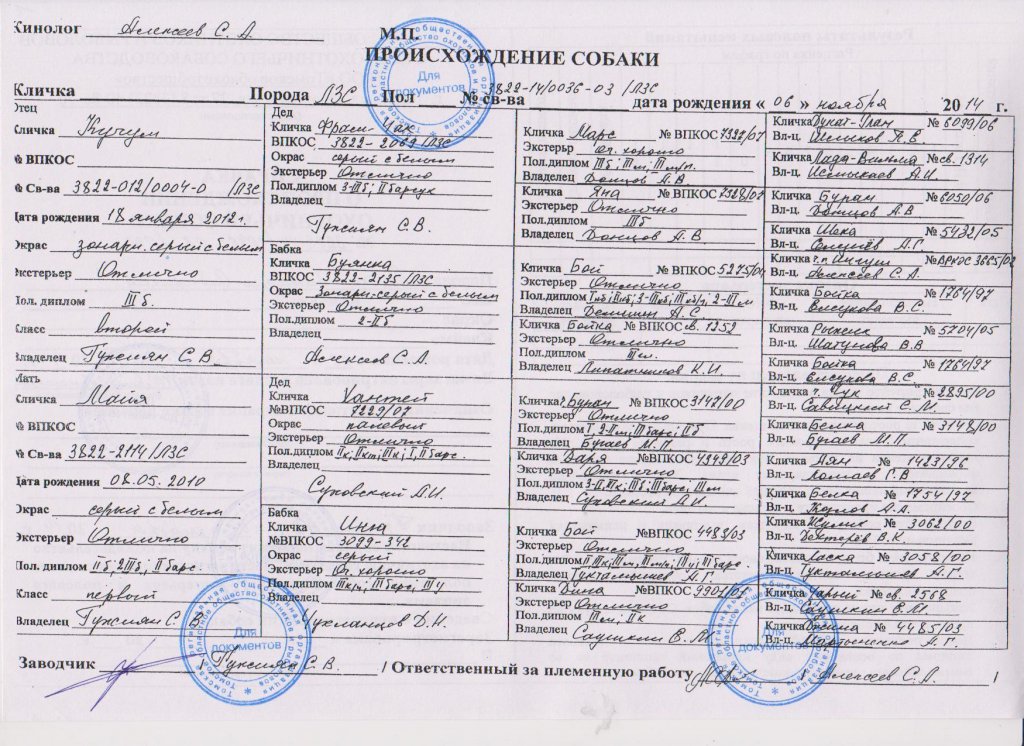 Кинолог Алексеев С. А.
М.П.
ПРОИСХОЖДЕНИЕ СОБАКИ
Кличка Порода ЛЗС Пол № св-ва 3822-14/0036-03 /ЛЗС дата рождения « 06 » ноября 2014 г.
Отец
Кличка Кучум
№ ВПКОС
№ Св-ва 3822-012/0004-0 /ЛЗС
Дата рождения 18 января 2012г.
Окрас зонарн. серый с белым
Экстерьер Отлично
Пол. диплом III б.
Класс второй
Владелец Гуксиян С. В.
Мать
Кличка Маия
№ ВПКОС
№ Св-ва 3822-2114/ЛЗС
Дата рождения 08.05. 2010
Окрас серый с белым
Экстерьер Отлично
Пол. диплом II б, 2 III б; II барс.
Класс первый
Владелец Гуксиян С. В.
Дед
Кличка
ВПКОС 3822-2069 /ЛЗС
Окрас серый с белым
Экстерьер Отлично
Пол.диплом 3-III б; II барсук
Владелец
Гуксиян С.В.
Бабка
Кличка Буянка
ВПКОС 3822-2135 /ЛЗС
Окрас Зонарн-серый с белым
Экстерьер Отлично
Пол.диплом 2-II б
Владелец
Алексеев С. А.
Дед
Кличка Хантей
№ВПКОС 7229/07
Окрас палевый
Экстерьер Отлично
Пол.диплом
Владелец
Суховский А.И.
Бабка
Кличка Инга
№ВПКОС 3099-342
Окрас серый
Экстерьер Оч. хорошо
Пол.диплом III к/ч; III барс; III у
Владелец
Чукманцов Д.Н.
Кличка Марс № ВПКОС 7327/07
Экстерьер Оч. хорошо
Пол.диплом
Владелец Донцов А.В
Кличка Яна № ВПКОС 7328/07
Экстерьер Отлично
Пол.диплом III б
Владелец Донцов А. В
Кличка Бой № ВПКОС 5275/04
Экстерьер Отлично
Пол.диплом
Владелец Демшин А. С.
Кличка Бойка № ВПКОС св. 1252
Экстерьер Отлично
Пол.диплом III м.
Владелец Липатников К.И.
Кличка Буран № ВПКОС 3147/00
Экстерьер Отлично
Пол.диплом I, 2-II м; III барс; II б
Владелец Бугаев М. П.
Кличка Даря №ВПКОС 4999/03
Экстерьер Отлично
Пол.диплом
Владелец Суховский А.И.
Кличка Бой №ВПКОС 4483/03
Экстерьер Отлично
Пол.диплом
Владелец Туктамышев А. Г.
Кличка Дина №ВПКОС
Экстерьер Отлично
Пол.диплом III м; II к
Владелец Саушкин В. М.
Кличка № 6099/06
Вл-ц.
Кличка Лада-Вильма № св. 1314
Вл-ц. А.И.
Кличка Буран № 6050/06
Вл-ц. Донцов А. В
Кличка № 5432/05
Вл-ц. А.Г.
Кличка ч.п. Ингуш № ВРКОС 3665/02
Вл-ц. Алексеев С. А.
Кличка Бойка № 1764/97
Вл-ц. Елсукова В.С.
Кличка № 5704/05
Вл-ц. Шатунова В.В
Кличка Бойка № 1764/97
Вл-ц. Елсукова В. С.
Кличка ч. Чук № 2895/00
Вл-ц. Савицкий С. М.
Кличка Белка № 3148/00
Вл-ц. Бугаев М.П.
Кличка Аян № 1423/96
Вл-ц. Ломаев Г.В
Кличка Белка № 1754/97
Вл-ц. Козлов А.А.
Кличка Жулик № 3062/00
Вл-ц. Дектерёв В.К
Кличка Ласка № 3058/00
Вл-ц. Туктамышев А. Г.
Кличка № св. 2568
Вл-ц. Саушкин В.М.
Кличка Джина № 4485/03
Вл-ц. Мартыненко А. Г.
Заводчик Гуксиян С. В. / Ответственный за племенную работу / Алексеев С. А. /
Для документов
Для документов
Для документов